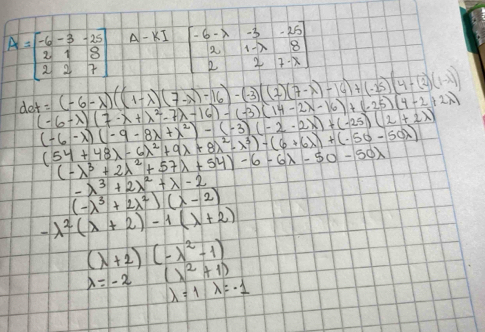 A = [-6 -3 -25   A - KI [-6-λ -3 -25
2 1 8   2 1-λ 8
2 2 7]   2 2 7-λ]
det = (-6-λ)((1-λ)(7-λ)-16)-(-3)(2)(7-λ)-16)+(-25)(4-(2)(1-λ))
(-6-λ)(7-λ+λ²-7λ-16)-(-3)(14-2λ-16)+(-25)(4-2+2λ)
(-6-λ)(-9-8λ+λ²)-(-3)(-2-2λ)+(-25)(2+2λ)
(54+48λ-6λ²+9λ+8λ²-λ³)-(6+6λ)+(-50-50λ)
(-λ³+2λ²+57λ+54)-6-6λ-50-50λ
-λ³+2λ²+λ-2
(-λ³+2λ²)(λ-2)
-λ²(λ+2)-1(λ+2)
(λ+2)(-λ²-1)
λ=-2 (λ²+1)
λ=1 λ=-1